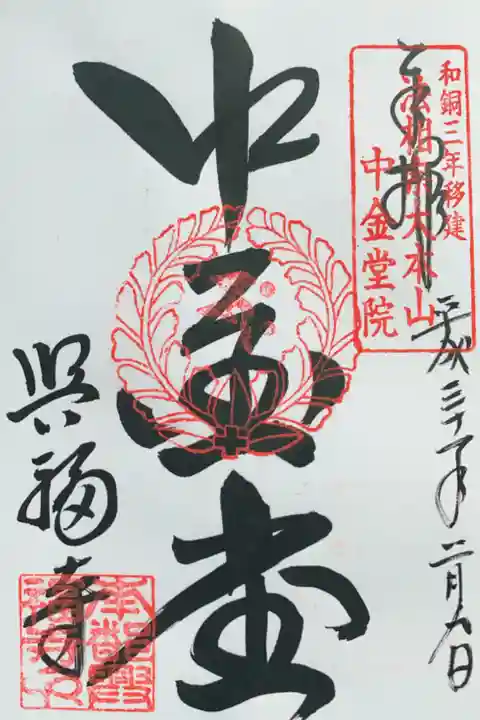 和銅三年移建
法相宗大本山
中金堂院
奉拝
平成三十一年二月九日
中金堂
興福寺